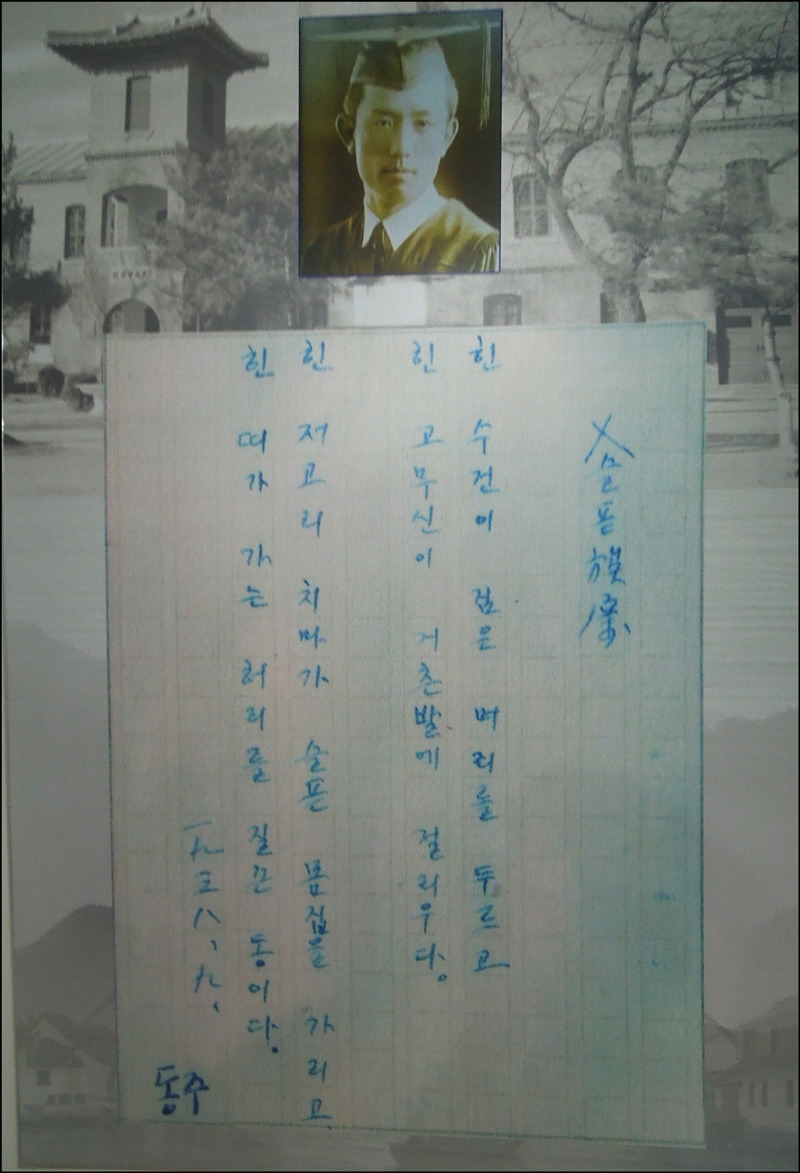 슬픈族屬
힌 수건이 검은 머리를 두르고
힌 고무신이 거츤발에 걸리우다。
힌 저고리 치마가 슬픈 몸집을 가리고
힌 띠가 가는 허리를 질끈 동이다。
一九三八、九、
동주